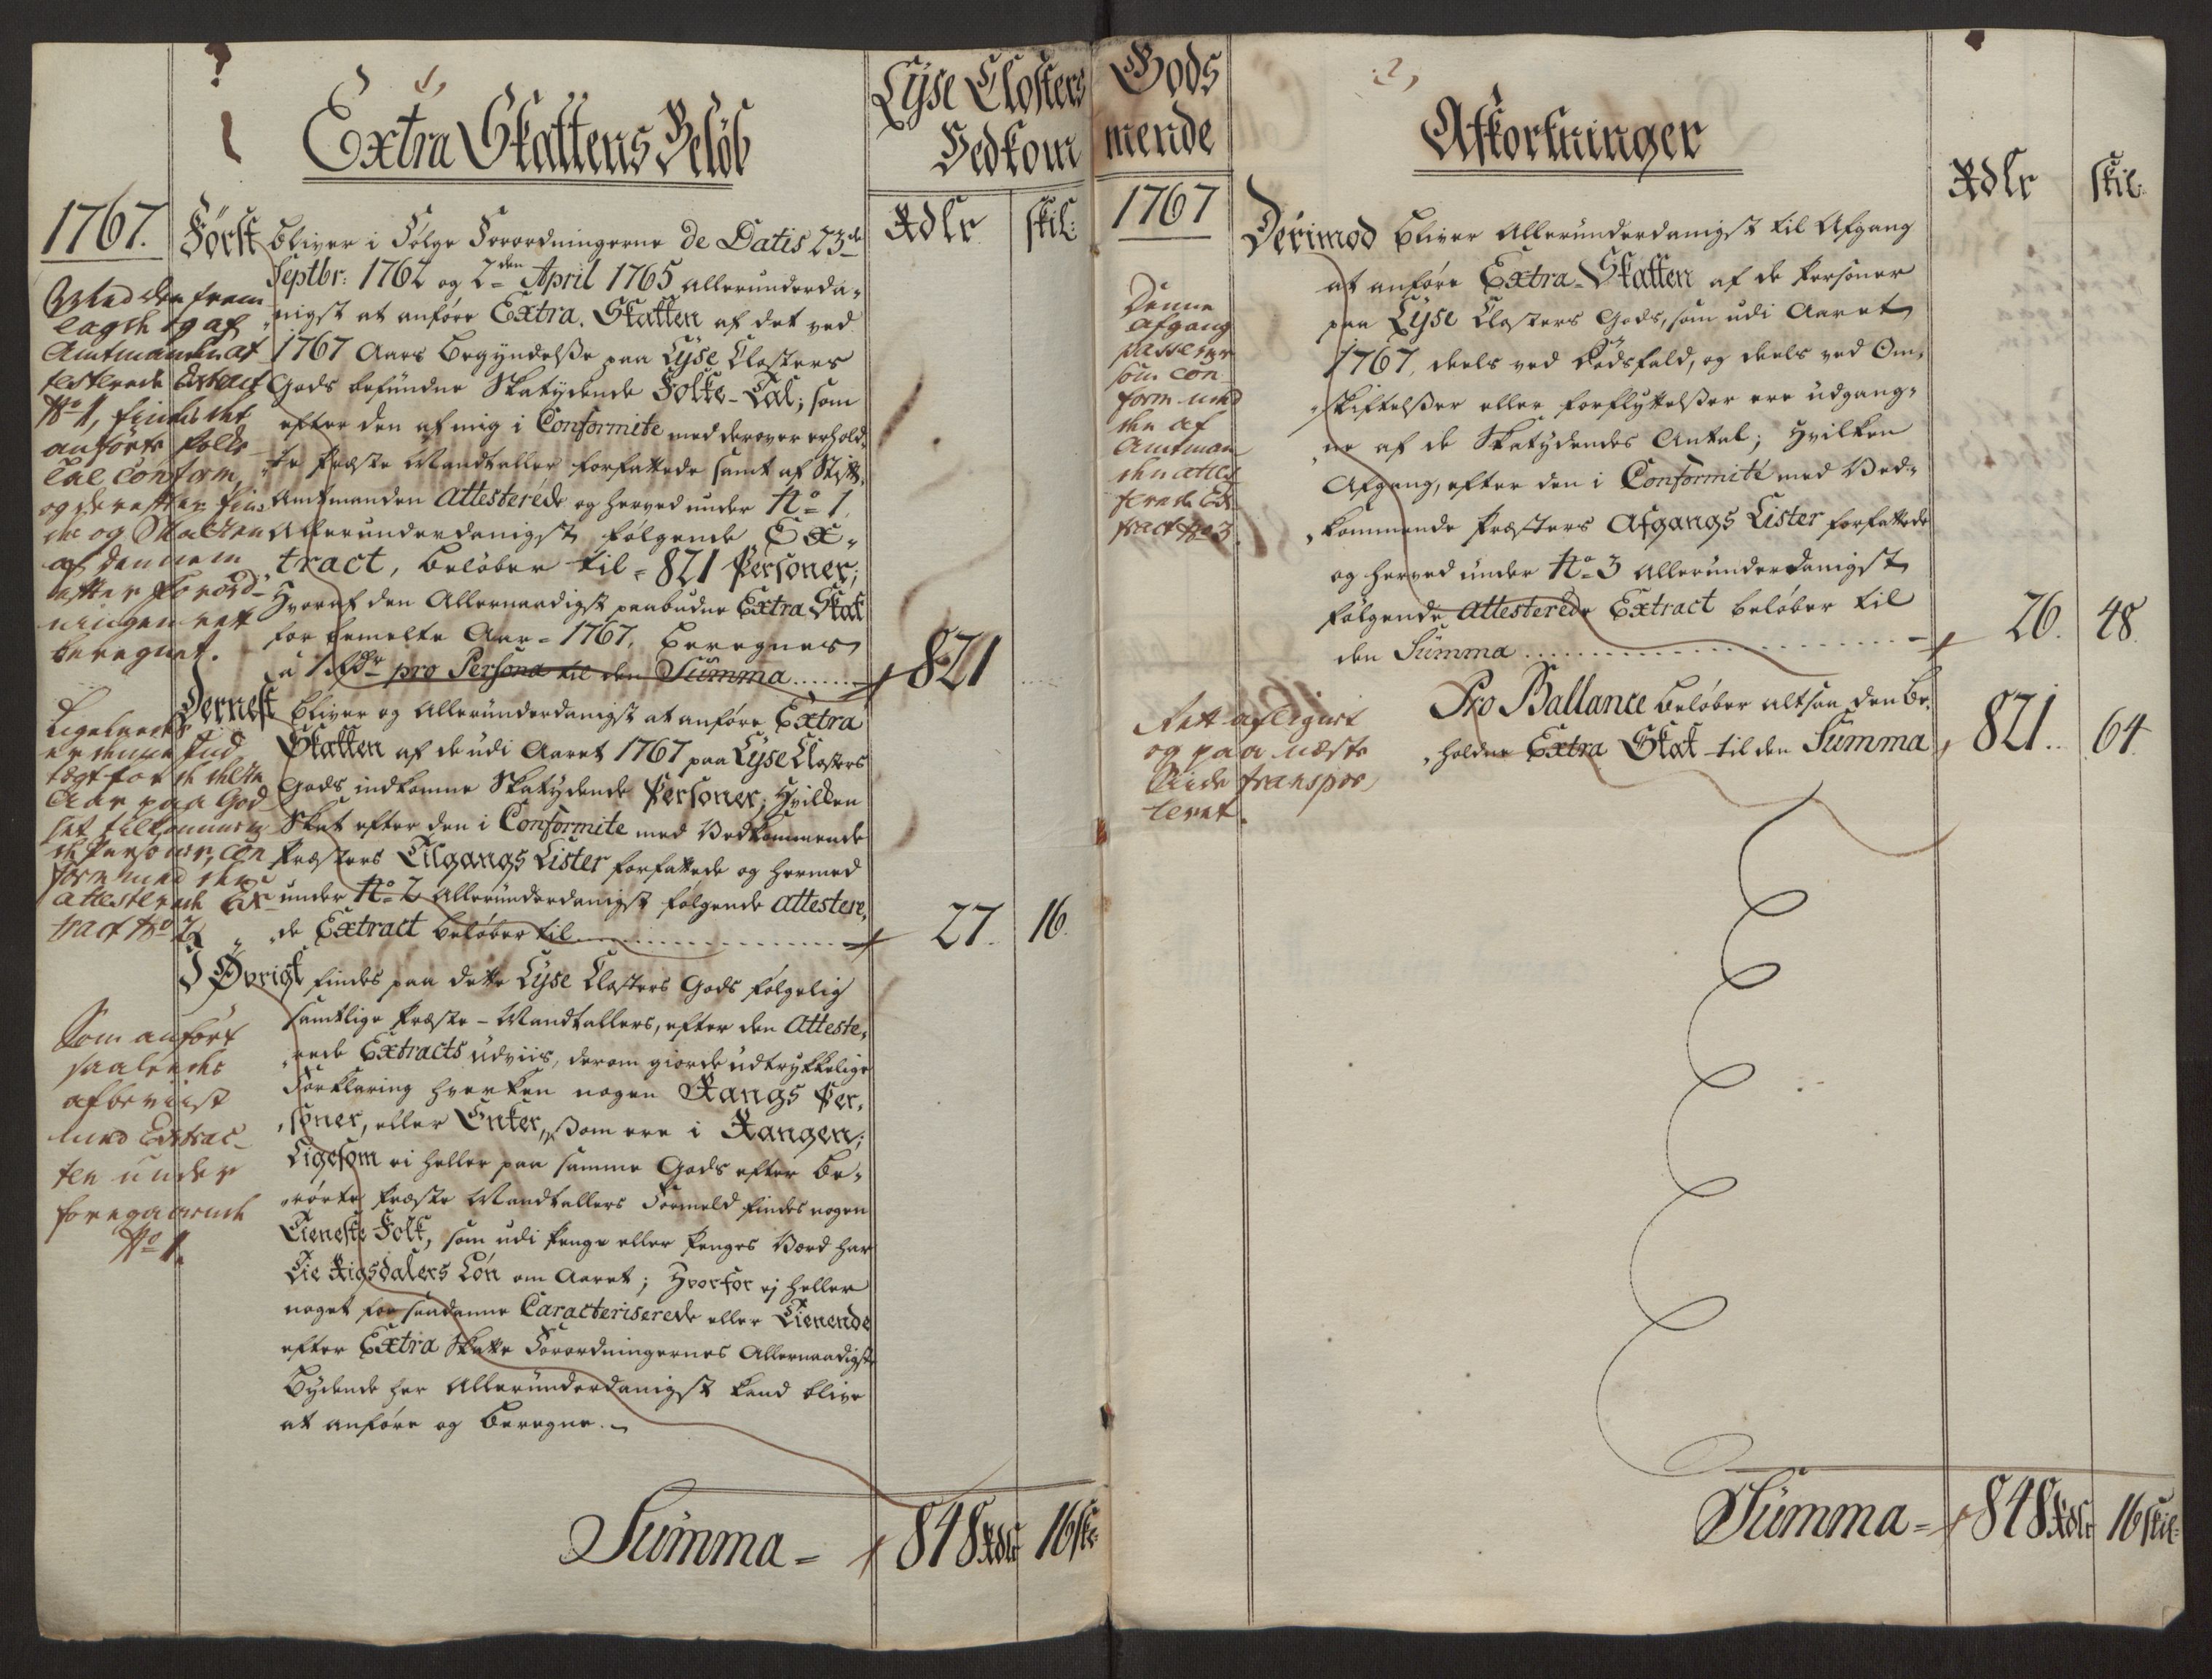 1,
Extra Skattens Beløb
Lyse Closters
Vedkom
Rdlr
skil:
1767.
Først bliver i Følge Forordningerne de Datis 23de
Septbr: 1762 og 2den April 1765 allerunderda-
nigst at anføre Extra. Skatten af det ved
1767 Aars Begyndelse paa Lyse Closters
Gods befundne Skatydende Folke-Tal; som
efter den af mig i Conformite med derover erhold-
te Præste Mandtaller forfattede samt af Stift-
Amtmanden Attesterede og herved under No 1.
Allerunderdanigst følgende Ex-
tract, beløber til = 821 Personer;
Hvoraf den Allernaadigst paabudne Extra Skat
for bemelte Aar = 1767, beregnes
a 1 Rdr pro Persona til den Summa
821
Med den frem
lagde og af
Amtmanden at
testerede Extract
No 1, findes det
anførte Folke
Tal conform,
og derefter fin
des og Skatten
af dennem
efter Forord-
ningen rett
beregnet.
Dernest bliver og Allerunderdanigst at anføre Extra
Skatten af de udi Aaret 1767 paa Lyse Closters
Gods indkomne Skatydende Personer; Hvilken
Skat efter den i Conformite med Vedkommende
Præsters Tilgangs Lister forfattede og hermed
under No 2 Allerunderdanigst følgende attestere-
de Extract beløber til
27. 16.
Ligeledes
er denne Ind
tægt for de dette
Aar paa God
set tilkommen
de Personer, con
form med den
attesterede Ex
tract No 2
I Øvrigt findes paa dette Lyse Closters Gods følgelig
samtlige Præste-Mandtallers, efter den Atteste-
rede Extracts udviis, derom giorde udtrykkelige
Forklaring hverken nogen Rangs Per-
soner, eller Enker, som ere i Rangen;
Ligesom ei heller paa samme Gods efter be-
rørte Præste Mandtallers Formeld findes nogen
Tieneste Folk, som udi Penge eller Penges Værd har
Tie Rigsdalers Løn om Aaret; Hvorfor ej heller
noget for saadanne Caracteriserede eller Tienende
efter Extra Skatte Forordningernes Allernaadigste
Bydende her Allerunderdanigst kand blive
at anføre og beregne.
Som anført
saaledes
af beviist
med Extrac-
ten under
foregaaende
No 1.
Summa = 848 Rdlr 16 sk:
2,
Gods
mende
Afkortninger
Rdlr
skil:
1767
Derimod bliver Allerunderdanigst til Afgang
at anføre Extra-Skatten af de Personer
paa Lyse Closters Gods, som udi Aaret
1767, deels ved Dødsfald, og deels ved Om-
skiftelser eller forflyttelser ere udgang-
ne af de Skatydendes Antal; Hvilken
Afgang, efter den i Conformité med Ved-
kommende Præsters Afgangs Lister forfattede
og herved under No 3 allerunderdanigst
følgende Attesterede Extract beløber til
den Summa
26. 48.
Denne
Afgang
passerer
som con
form med
den af
Amtman
den attes
terede Ex
tract No 3.
Pro Ballance beløber altsaa den be-
holdne Extra Skat til den Summa
821. 64
Rett
og paa næste
Side transpor
teret.
Summa = 848 Rdlr 16 skil: